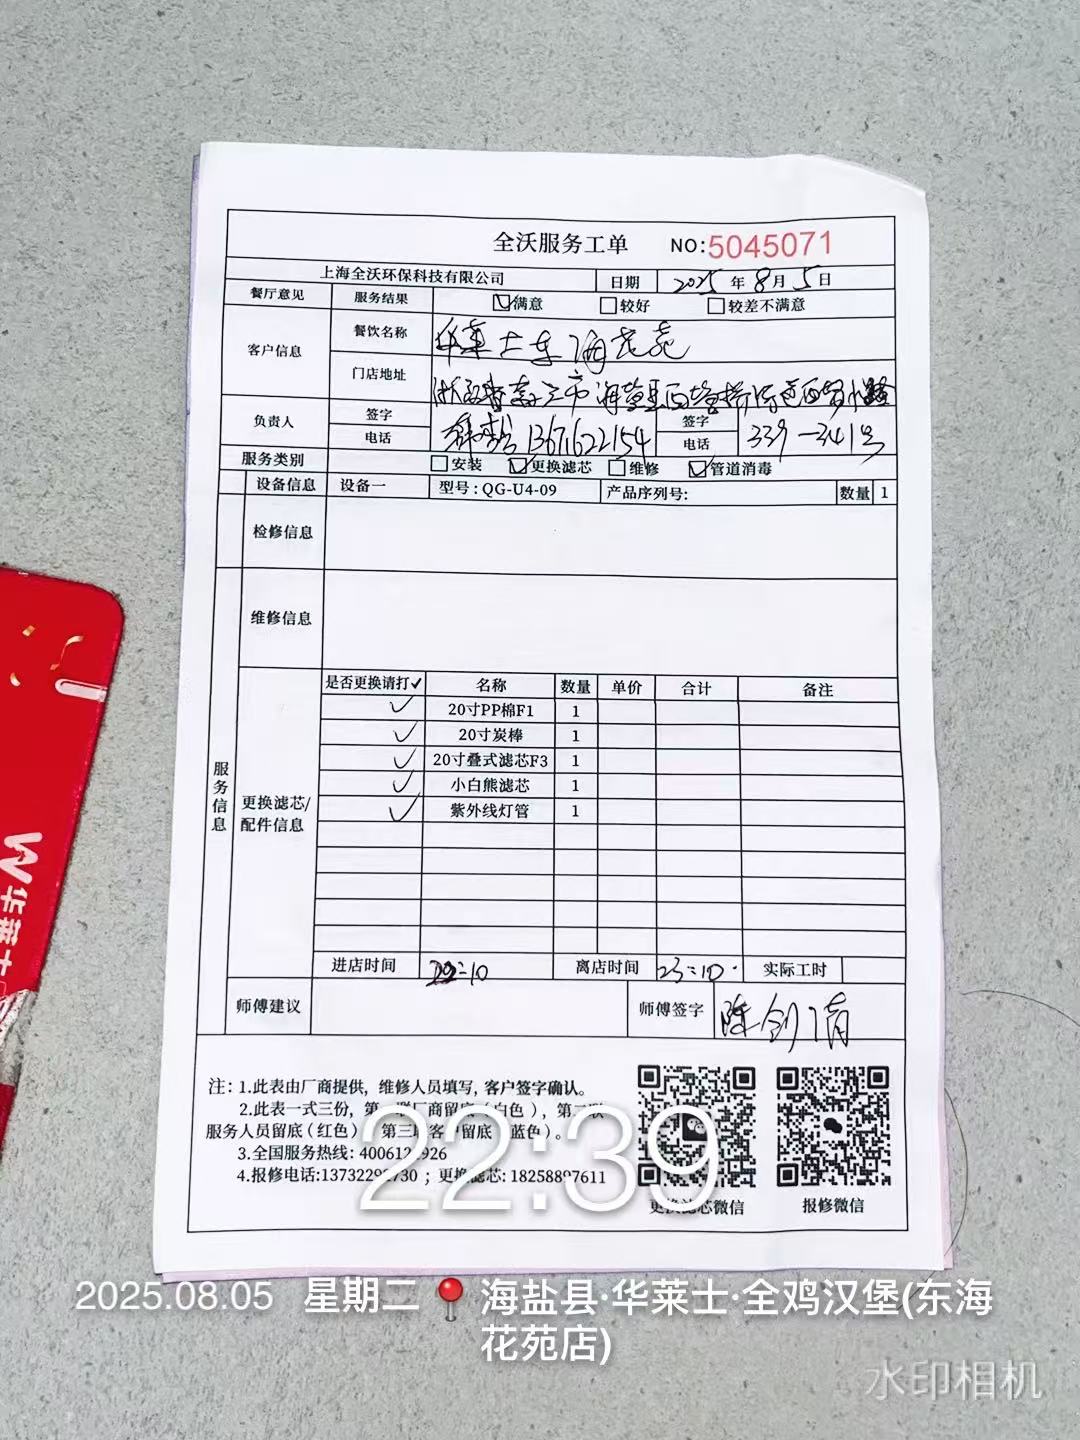 全沃服务工单 NO:5045071
上海全沃环保科技有限公司 日期 2025 年 8 月 5 日
餐厅意见 服务结果 满意 较好 较差不满意
客户信息 餐饮名称 华莱士东海花苑
门店地址 浙江省嘉兴市海盐县西塘桥街道西
负责人 签字 签字
电话 13671622154 电话 339-341号
服务类别 安装 更换滤芯 维修 管道消毒
设备信息 设备一 型号:QG-U4-09 产品序列号: 数量 1
检修信息
维修信息
服务信息
更换滤芯/配件信息
是否更换请打✓ 名称 数量 单价 合计 备注
✓ 20寸PP棉F1 1
✓ 20寸炭棒 1
✓ 20寸叠式滤芯F3 1
✓ 小白熊滤芯 1
✓ 紫外线灯管 1
进店时间 22:10 离店时间 23:10. 实际工时
师傅建议 师傅签字 陈剑清
注: 1.此表由厂商提供, 维修人员填写, 客户签字确认。
2.此表一式三份, 第一联厂商留底(白色), 第二联
服务人员留底(红色) 第三联客 留底 蓝色)。
3.全国服务热线: 400612 926
4.报修电话:1373229 730 ; 更换滤芯: 18258897611
更换滤芯微信 报修微信
22:39
2025.08.05 星期二 海盐县·华莱士·全鸡汉堡(东海
花苑店)
水印相机
W华莱士